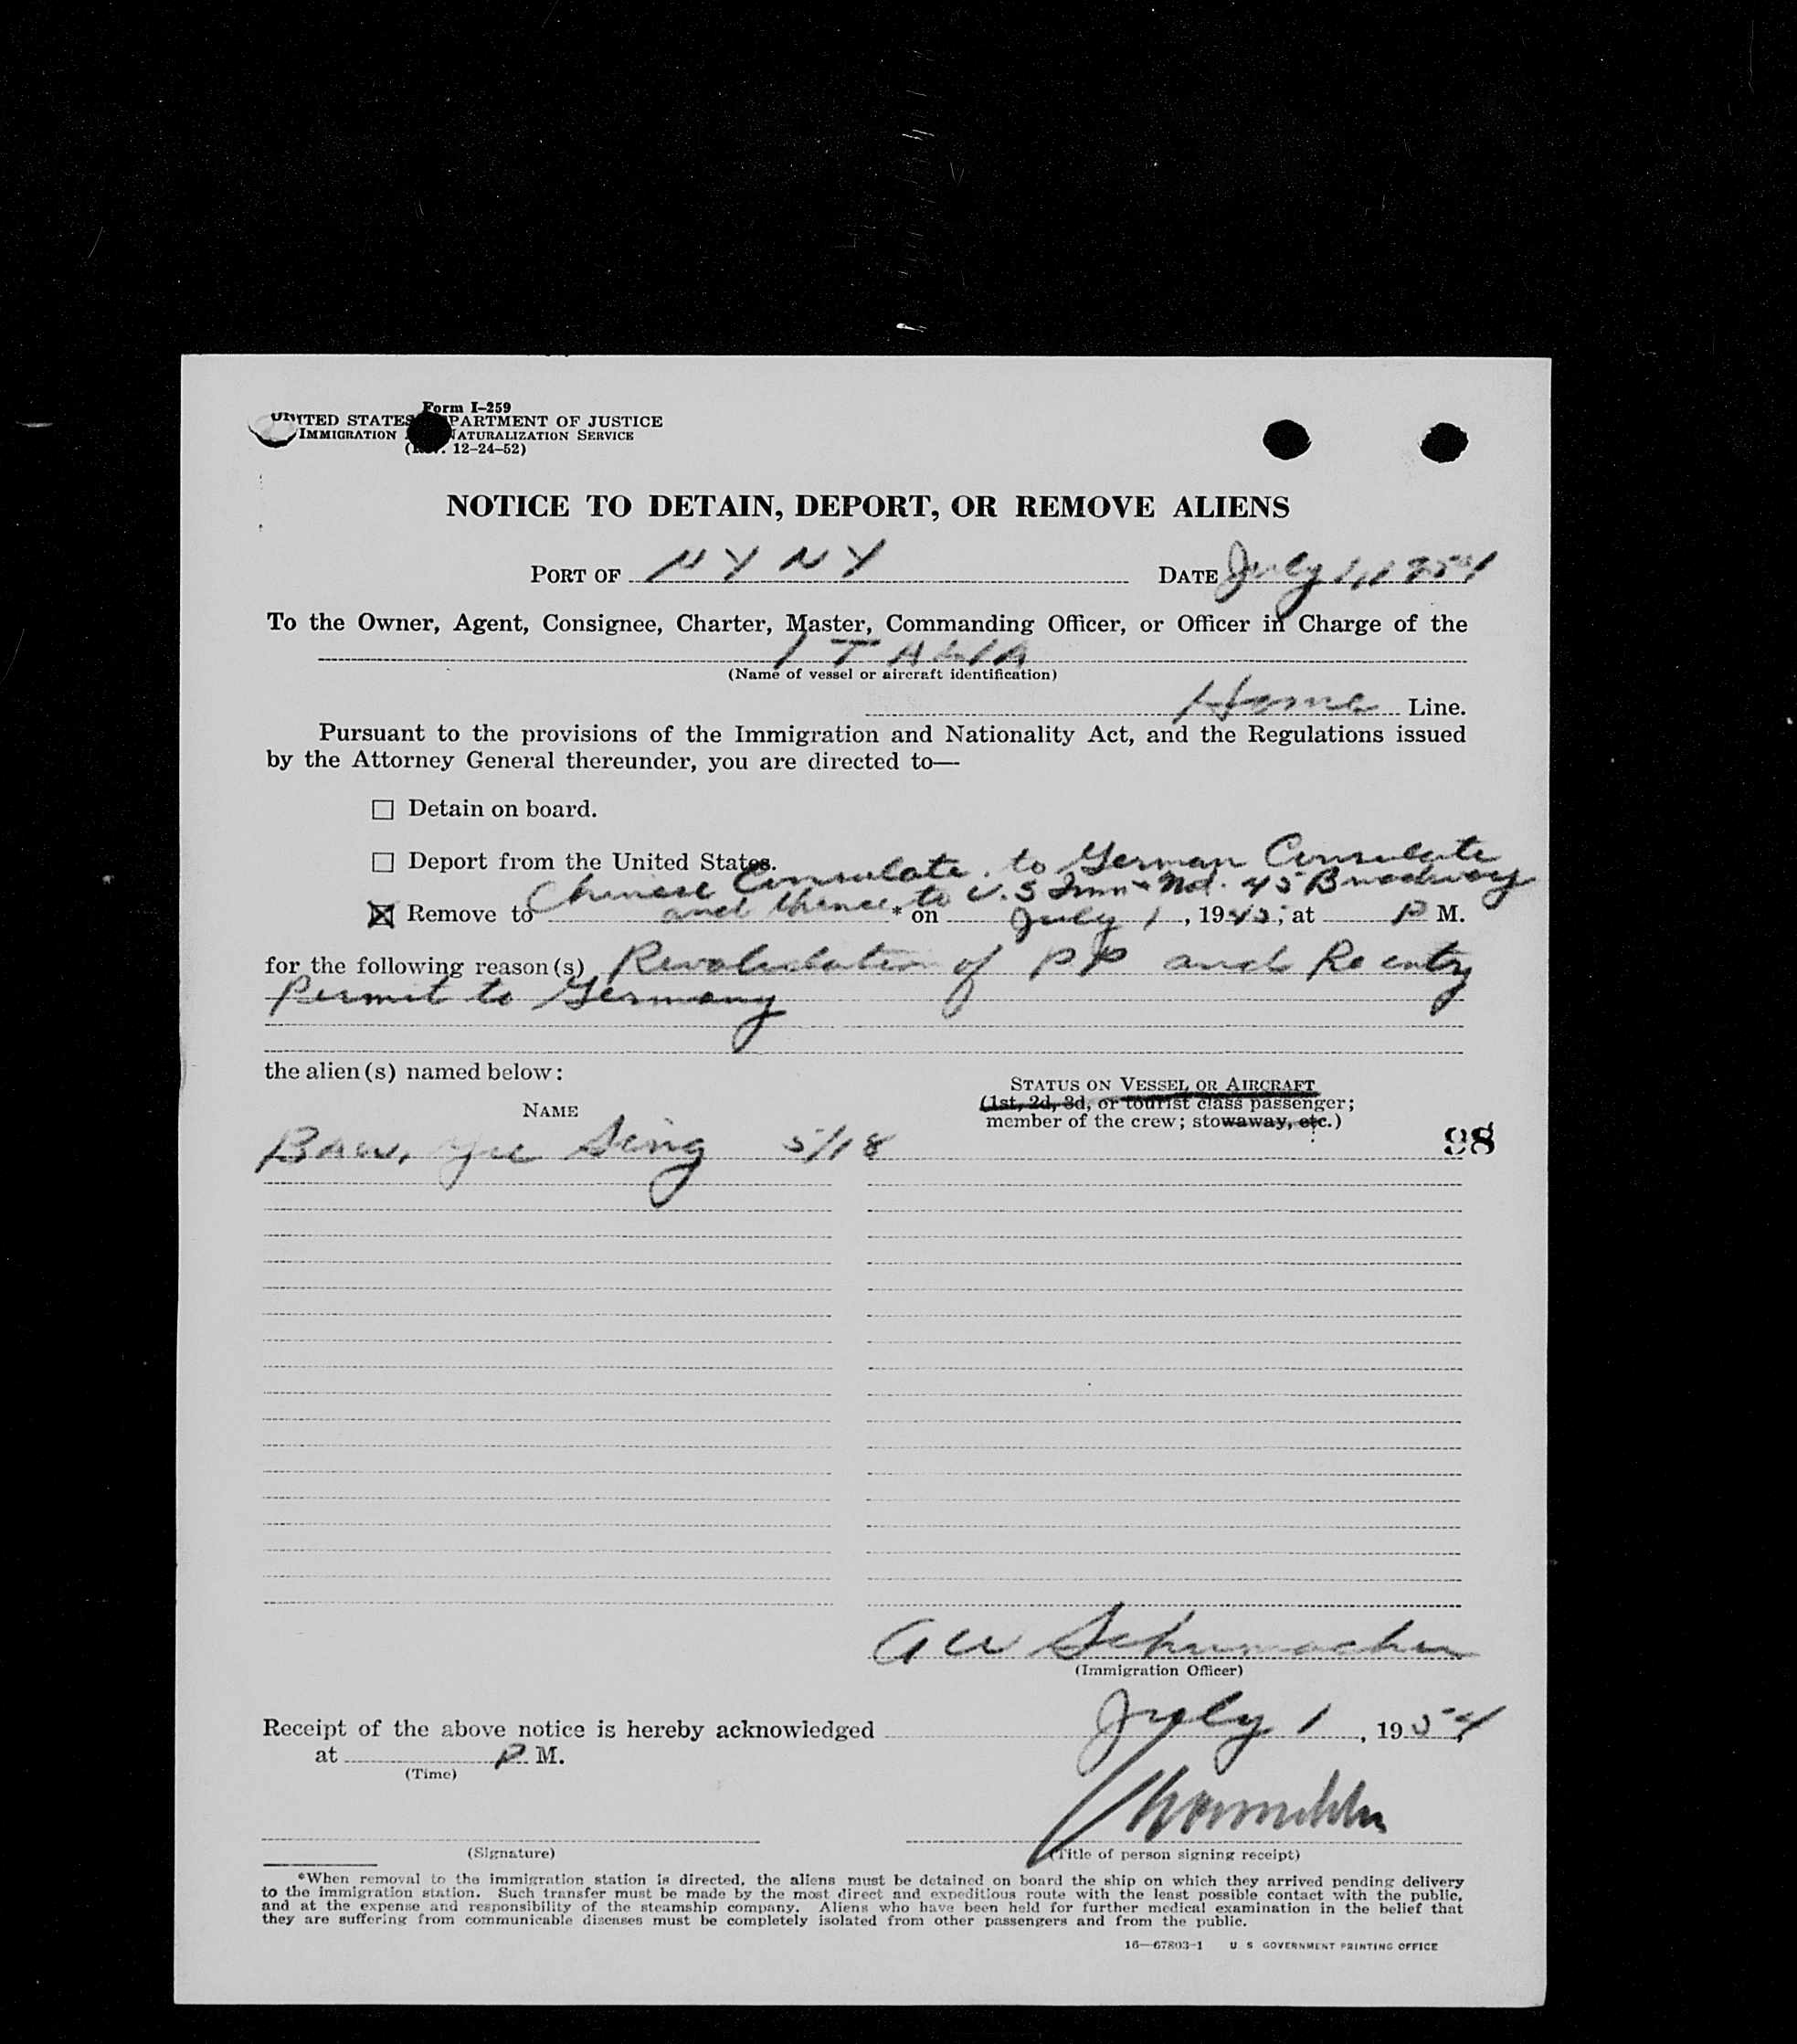 Form I-259
UNITED STATES DEPARTMENT OF JUSTICE
IMMIGRATION NATURALIZATION SERVICE
12-24-52)
NOTICE TO DETAIN, DEPORT, OR REMOVE ALIENS
PORT OF N Y N Y DATE July 1, 1954
To the Owner, Agent, Consignee, Charter, Master, Commanding Officer, or Officer in Charge of the
ITALIA
(Name of vessel or aircraft identification)
Home Line.
Pursuant to the provisions of the Immigration and Nationality Act, and the Regulations issued
by the Attorney General thereunder, you are directed to—
☐ Detain on board.
☐ Deport from the United States.
Chinese Consulate. to German Consulate
and thence to U.S Imm & Nat. 45 Broadway
☒ Remove to * on July 1, 19, at P M.
for the following reason(s) Revalidation of PP and Reentry
Permit to Germany
the alien(s) named below:
STATUS ON VESSEL OR AIRCRAFT
NAME (1st, 2d, 3d, or tourist class passenger;
member of the crew; stowaway, etc.)
98
Sing 5/18
Schumacher
(Immigration Officer)
Receipt of the above notice is hereby acknowledged July 1, 1954
at P. M.
(Time)
(Signature) (Title of person signing receipt)
*When removal to the immigration station is directed, the aliens must be detained on board the ship on which they arrived pending delivery
to the immigration station. Such transfer must be made by the most direct and expeditious route with the least possible contact with the public,
and at the expense and responsibility of the steamship company. Aliens who have been held for further medical examination in the belief that
they are suffering from communicable diseases must be completely isolated from other passengers and from the public.
16—67803-1 U S GOVERNMENT PRINTING OFFICE